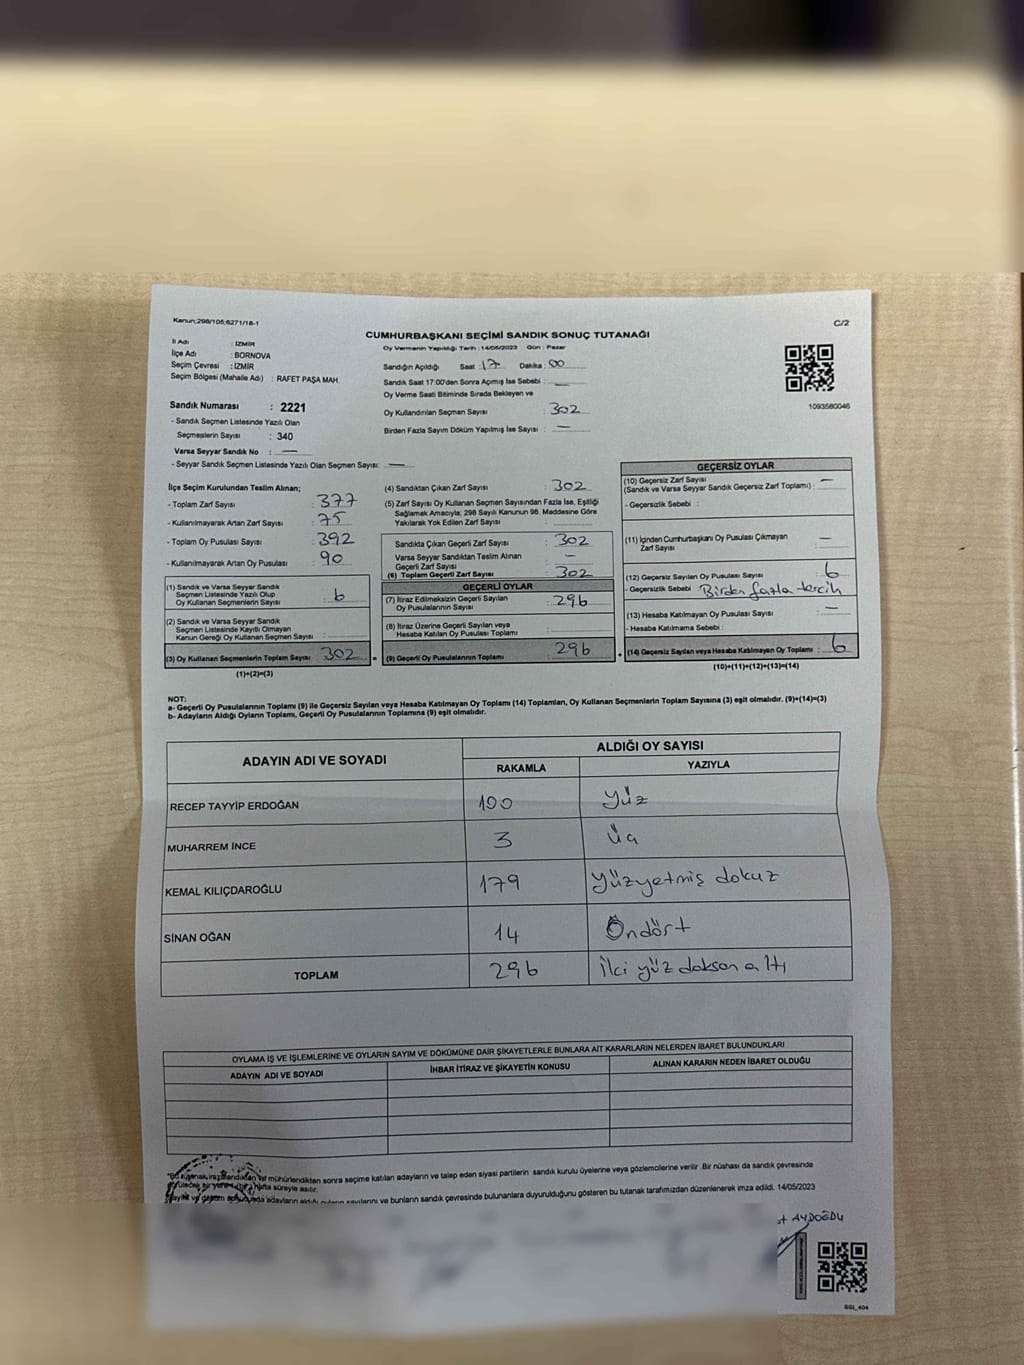 Kanun;298/105;6271/18-1
C/2
CUMHURBAŞKANI SEÇİMİ SANDIK SONUÇ TUTANAĞI
İl Adı : İZMİR
İlçe Adı : BORNOVA
Seçim Çevresi : İZMİR
Seçim Bölgesi (Mahalle Adı) : RAFET PAŞA MAH.
Oy Vermenin Yapıldığı Tarih : 14/05/2023 Gün : Pazar
Sandığın Açıldığı Saat : 17 Dakika : 00
Sandık Saat 17:00'den Sonra Açımış İse Sebebi : —
Oy Verme Saati Bitiminde Sırada Bekleyen ve
Oy Kullandırılan Seçmen Sayısı : 302
Birden Fazla Sayım Döküm Yapılmış İse Sayısı : —
1093580046
Sandık Numarası : 2221
- Sandık Seçmen Listesinde Yazılı Olan
Seçmenlerin Sayısı : 340
Varsa Seyyar Sandık No : —
- Seyyar Sandık Seçmen Listesinde Yazılı Olan Seçmen Sayısı: —
İlçe Seçim Kurulundan Teslim Alınan;
- Toplam Zarf Sayısı : 377
- Kullanılmayarak Artan Zarf Sayısı : 75
- Toplam Oy Pusulası Sayısı : 392
- Kullanılmayarak Artan Oy Pusulası : 90
(1) Sandık ve Varsa Seyyar Sandık
Seçmen Listesinde Yazılı Olup
Oy Kullanan Seçmenlerin Sayısı : 6
(2) Sandık ve Varsa Seyyar Sandık
Seçmen Listesinde Kayıtlı Olmayan
Kanun Gereği Oy Kullanan Seçmen Sayısı :
(3) Oy Kullanan Seçmenlerin Toplam Sayısı 302
(1)+(2)=(3)
(4) Sandıktan Çıkan Zarf Sayısı : 302
(5) Zarf Sayısı Oy Kullanan Seçmen Sayısından Fazla İse, Eşitliği
Sağlamak Amacıyla; 298 Sayılı Kanunun 98. Maddesine Göre
Yakılarak Yok Edilen Zarf Sayısı :
Sandıkta Çıkan Geçerli Zarf Sayısı : 302
Varsa Seyyar Sandıktan Teslim Alınan
Geçerli Zarf Sayısı : —
(6) Toplam Geçerli Zarf Sayısı : 302
GEÇERLİ OYLAR
(7) İtiraz Edilmeksizin Geçerli Sayılan
Oy Pusulalarının Sayısı : 296
(8) İtiraz Üzerine Geçerli Sayılan veya
Hesaba Katılan Oy Pusulası Toplamı :
= (9) Geçerli Oy Pusulalarının Toplamı : 296
GEÇERSİZ OYLAR
(10) Geçersiz Zarf Sayısı
(Sandık ve Varsa Seyyar Sandık Geçersiz Zarf Toplamı) : —
- Geçersizlik Sebebi :
(11) İçinden Cumhurbaşkanı Oy Pusulası Çıkmayan
Zarf Sayısı : —
(12) Geçersiz Sayılan Oy Pusulası Sayısı : 6
- Geçersizlik Sebebi : Birden fazla tercih
(13) Hesaba Katılmayan Oy Pusulası Sayısı : —
- Hesaba Katılmama Sebebi :
+ (14) Geçersiz Sayılan veya Hesaba Katılmayan Oy Toplamı : 6
(10)+(11)+(12)+(13)=(14)
NOT:
a- Geçerli Oy Pusulalarının Toplamı (9) ile Geçersiz Sayılan veya Hesaba Katılmayan Oy Toplamı (14) Toplamları, Oy Kullanan Seçmenlerin Toplam Sayısına (3) eşit olmalıdır. (9)+(14)=(3)
b- Adayların Aldığı Oyların Toplamı, Geçerli Oy Pusulalarının Toplamına (9) eşit olmalıdır.
ADAYIN ADI VE SOYADI
ALDIĞI OY SAYISI
RAKAMLA YAZIYLA
RECEP TAYYİP ERDOĞAN 100 Yüz
MUHARREM İNCE 3 Üç
KEMAL KILIÇDAROĞLU 179 Yüzyetmiş dokuz
SİNAN OĞAN 14 Ondört
TOPLAM 296 İki yüz doksan altı
OYLAMA İŞ VE İŞLEMLERİNE VE OYLARIN SAYIM VE DÖKÜMÜNE DAİR ŞİKAYETLERLE BUNLARA AİT KARARLARIN NELERDEN İBARET BULUNDUKLARI
ADAYIN ADI VE SOYADI İHBAR İTİRAZ VE ŞİKAYETİN KONUSU ALINAN KARARIN NEDEN İBARET OLDUĞU
mühürlendikten sonra seçime katılan adayların ve talep eden siyasi partilerin sandık kurulu üyelerine veya gözlemcilerine verilir .Bir nüshası da sandık çevresinde
hafta süreyle asılır.
adayların aldığı oyların sayılarını ve bunların sandık çevresinde bulunanlara duyurulduğunu gösteren bu tutanak tarafımızdan düzenlenerek imza edildi. 14/05/2023
AYDOĞDU